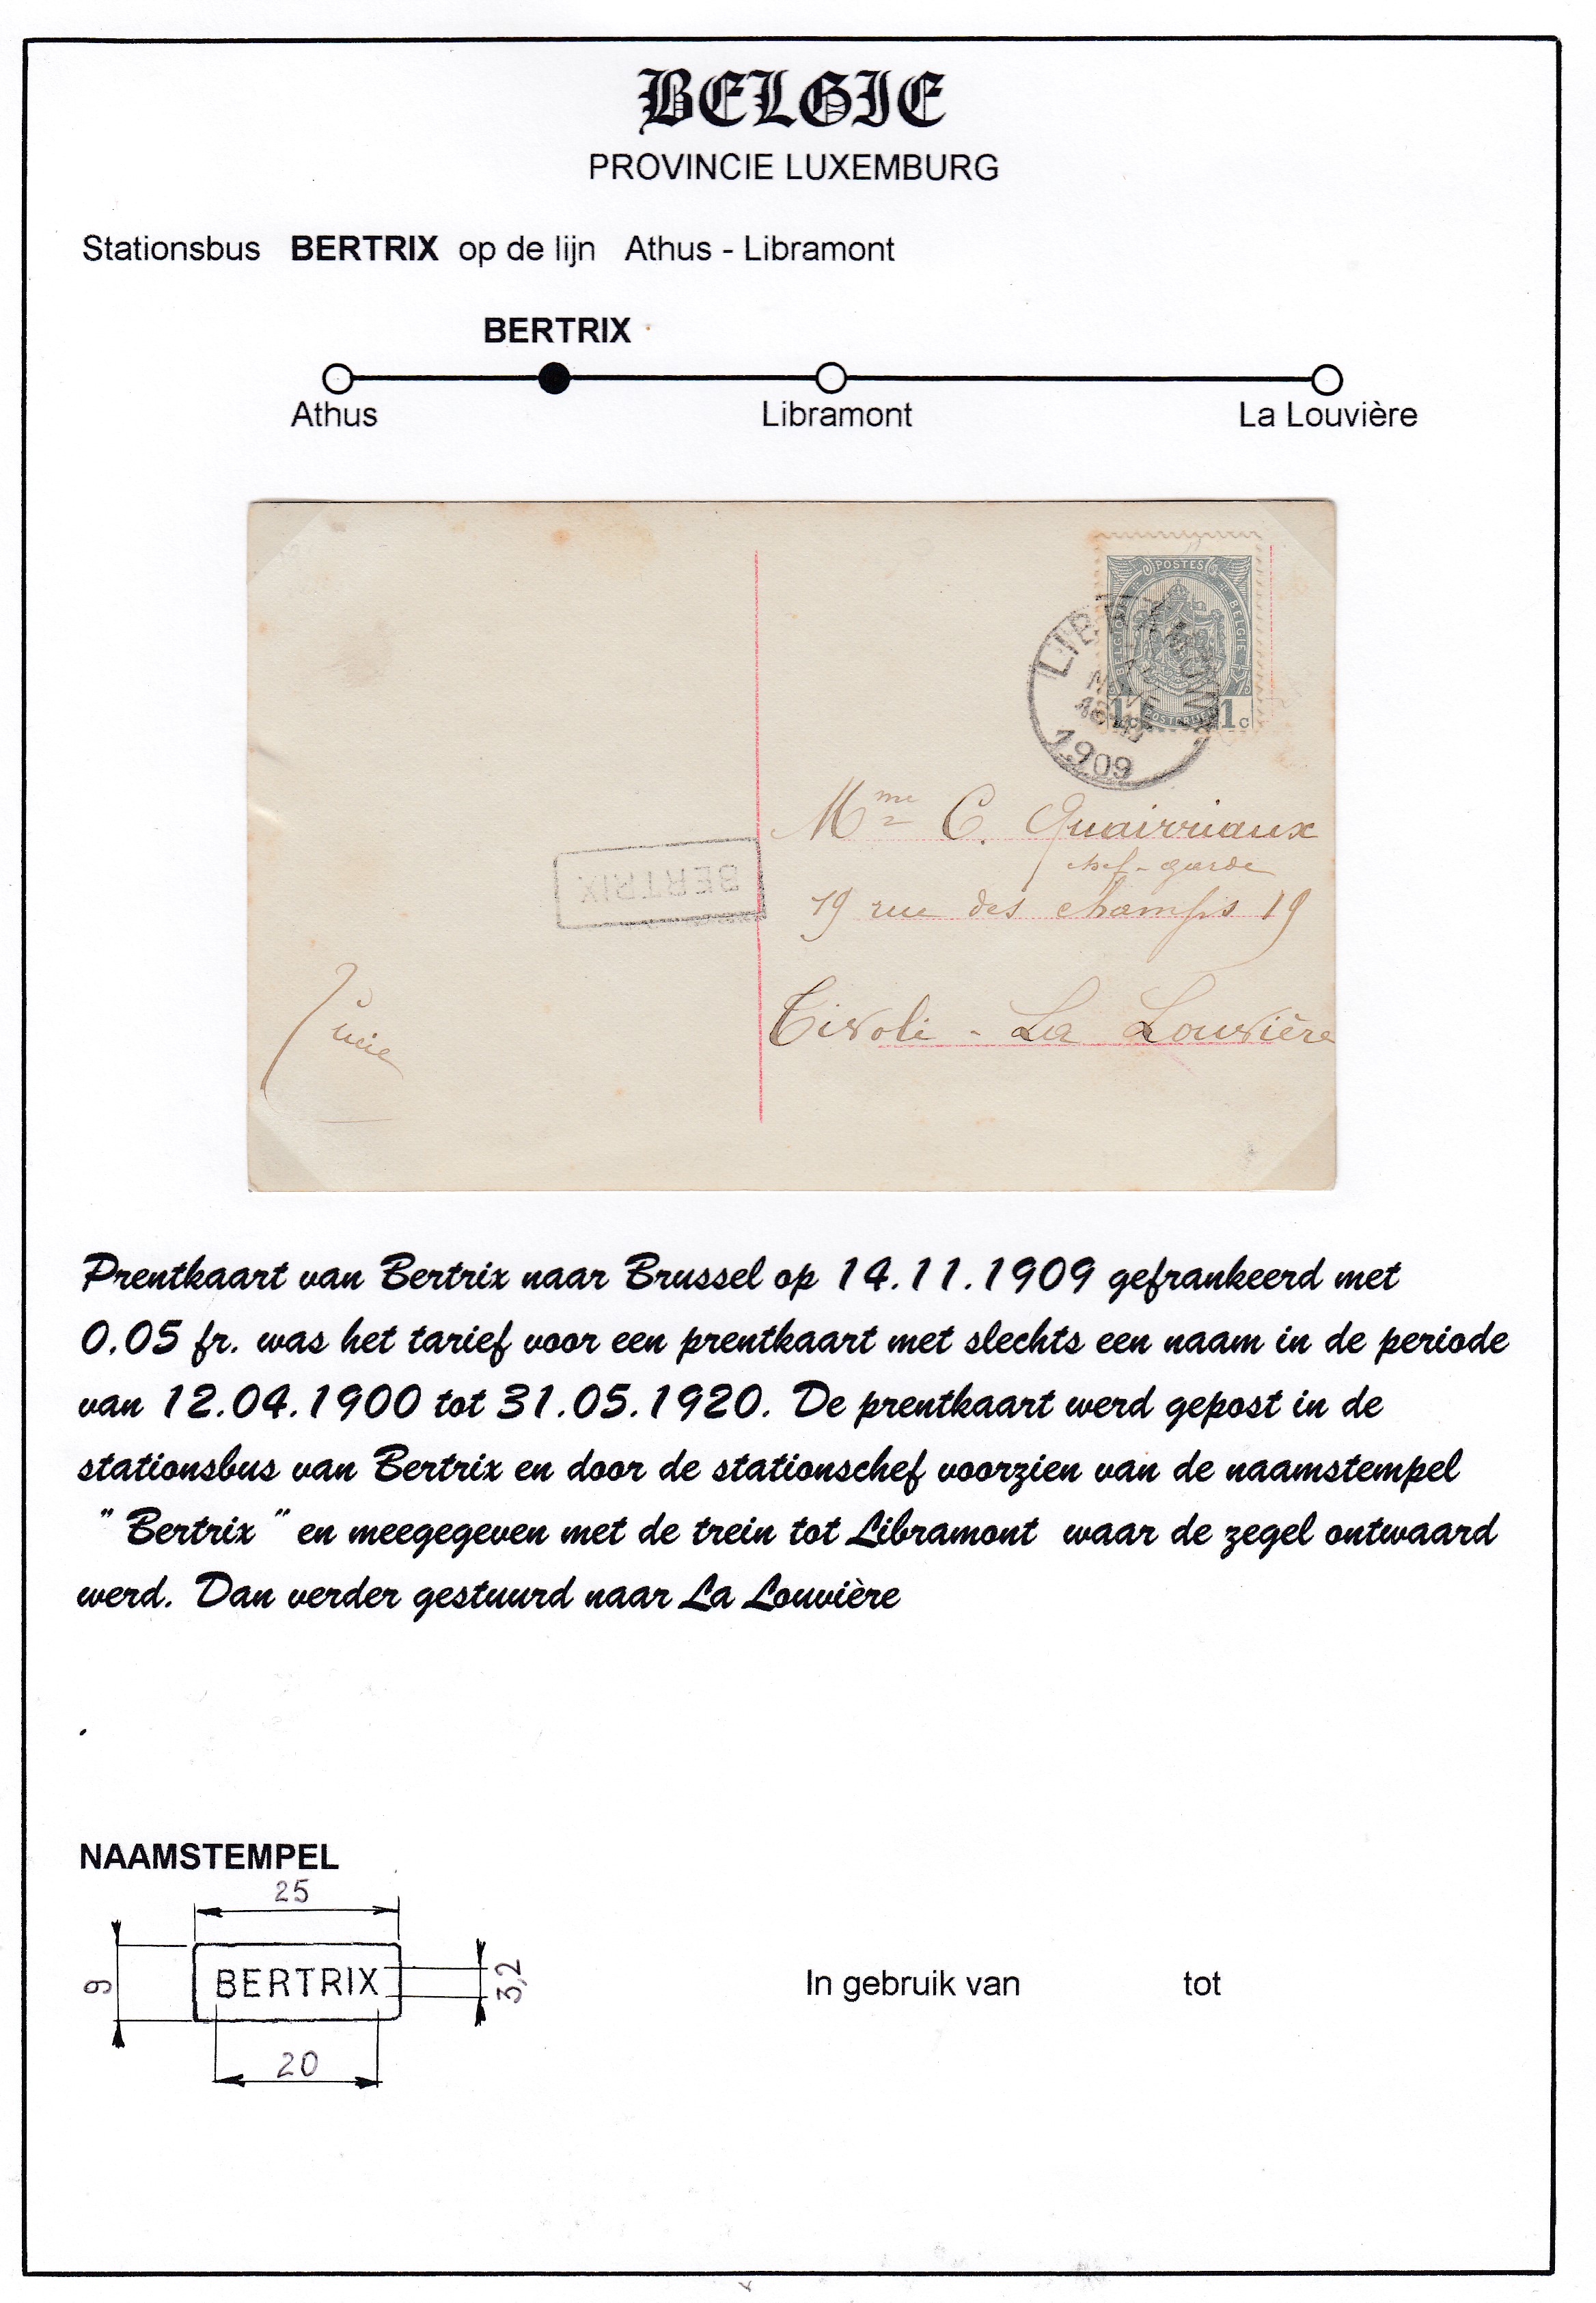 BELGIE
PROVINCIE LUXEMBURG
Stationsbus BERTRIX op de lijn Athus - Libramont
BERTRIX
Athus Libramont La Louvière
POSTES
BELGIQUE BELGIE
1c POSTERIJEN 1c
1909
Mme C. Quairriaux
chef-garde
BERTRIX
19 rue des champs 19
Tivoli - La Louvière
Lucie
Prentkaart van Bertrix naar Brussel op 14.11.1909 gefrankeerd met
0.05 fr. was het tarief voor een prentkaart met slechts een naam in de periode
van 12.04.1900 tot 31.05.1920. De prentkaart werd gepost in de
stationsbus van Bertrix en door de stationschef voorzien van de naamstempel
" Bertrix " en meegegeven met de trein tot Libramont waar de zegel ontwaard
werd. Dan verder gestuurd naar La Louvière
NAAMSTEMPEL
25
9
BERTRIX
3,2
20
In gebruik van tot